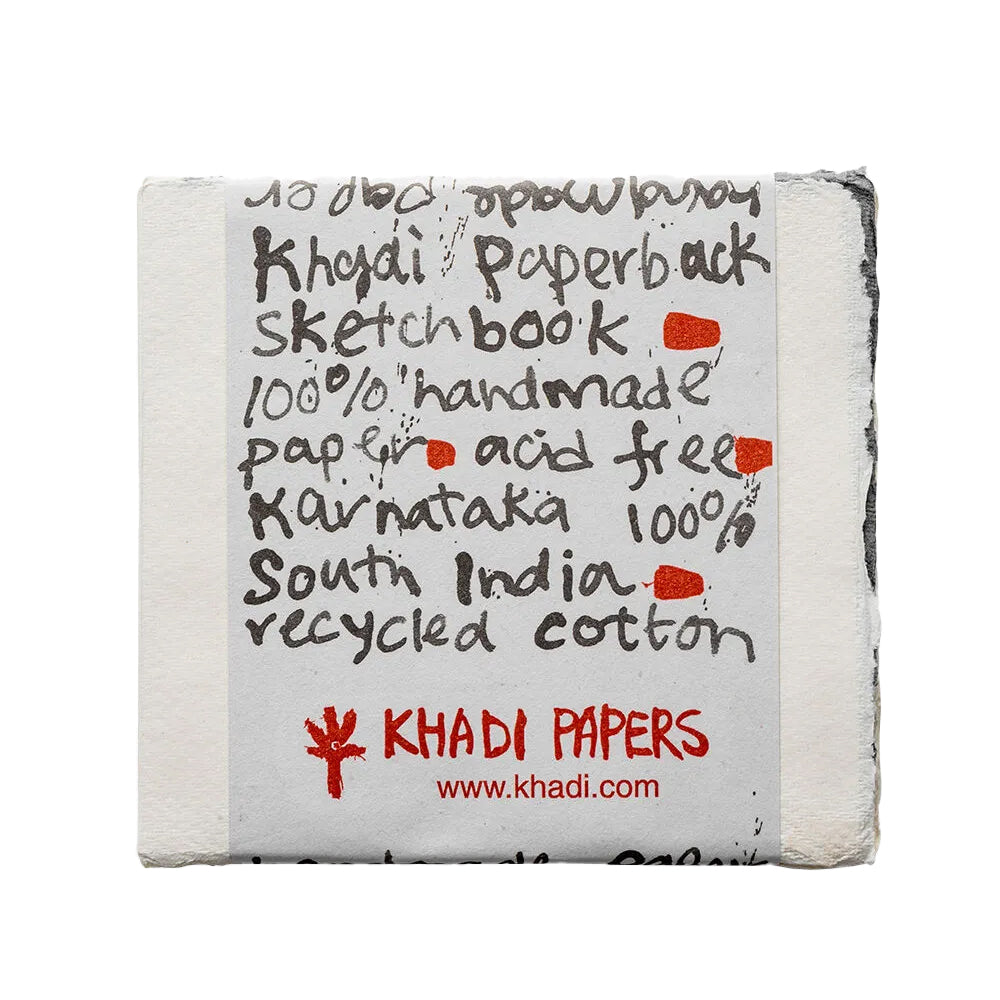 Khadi Paperback
sketchbook
100% handmade
paper acid free
Karnataka 100%
South India
recycled cotton
KHADI PAPERS
www.khadi.com